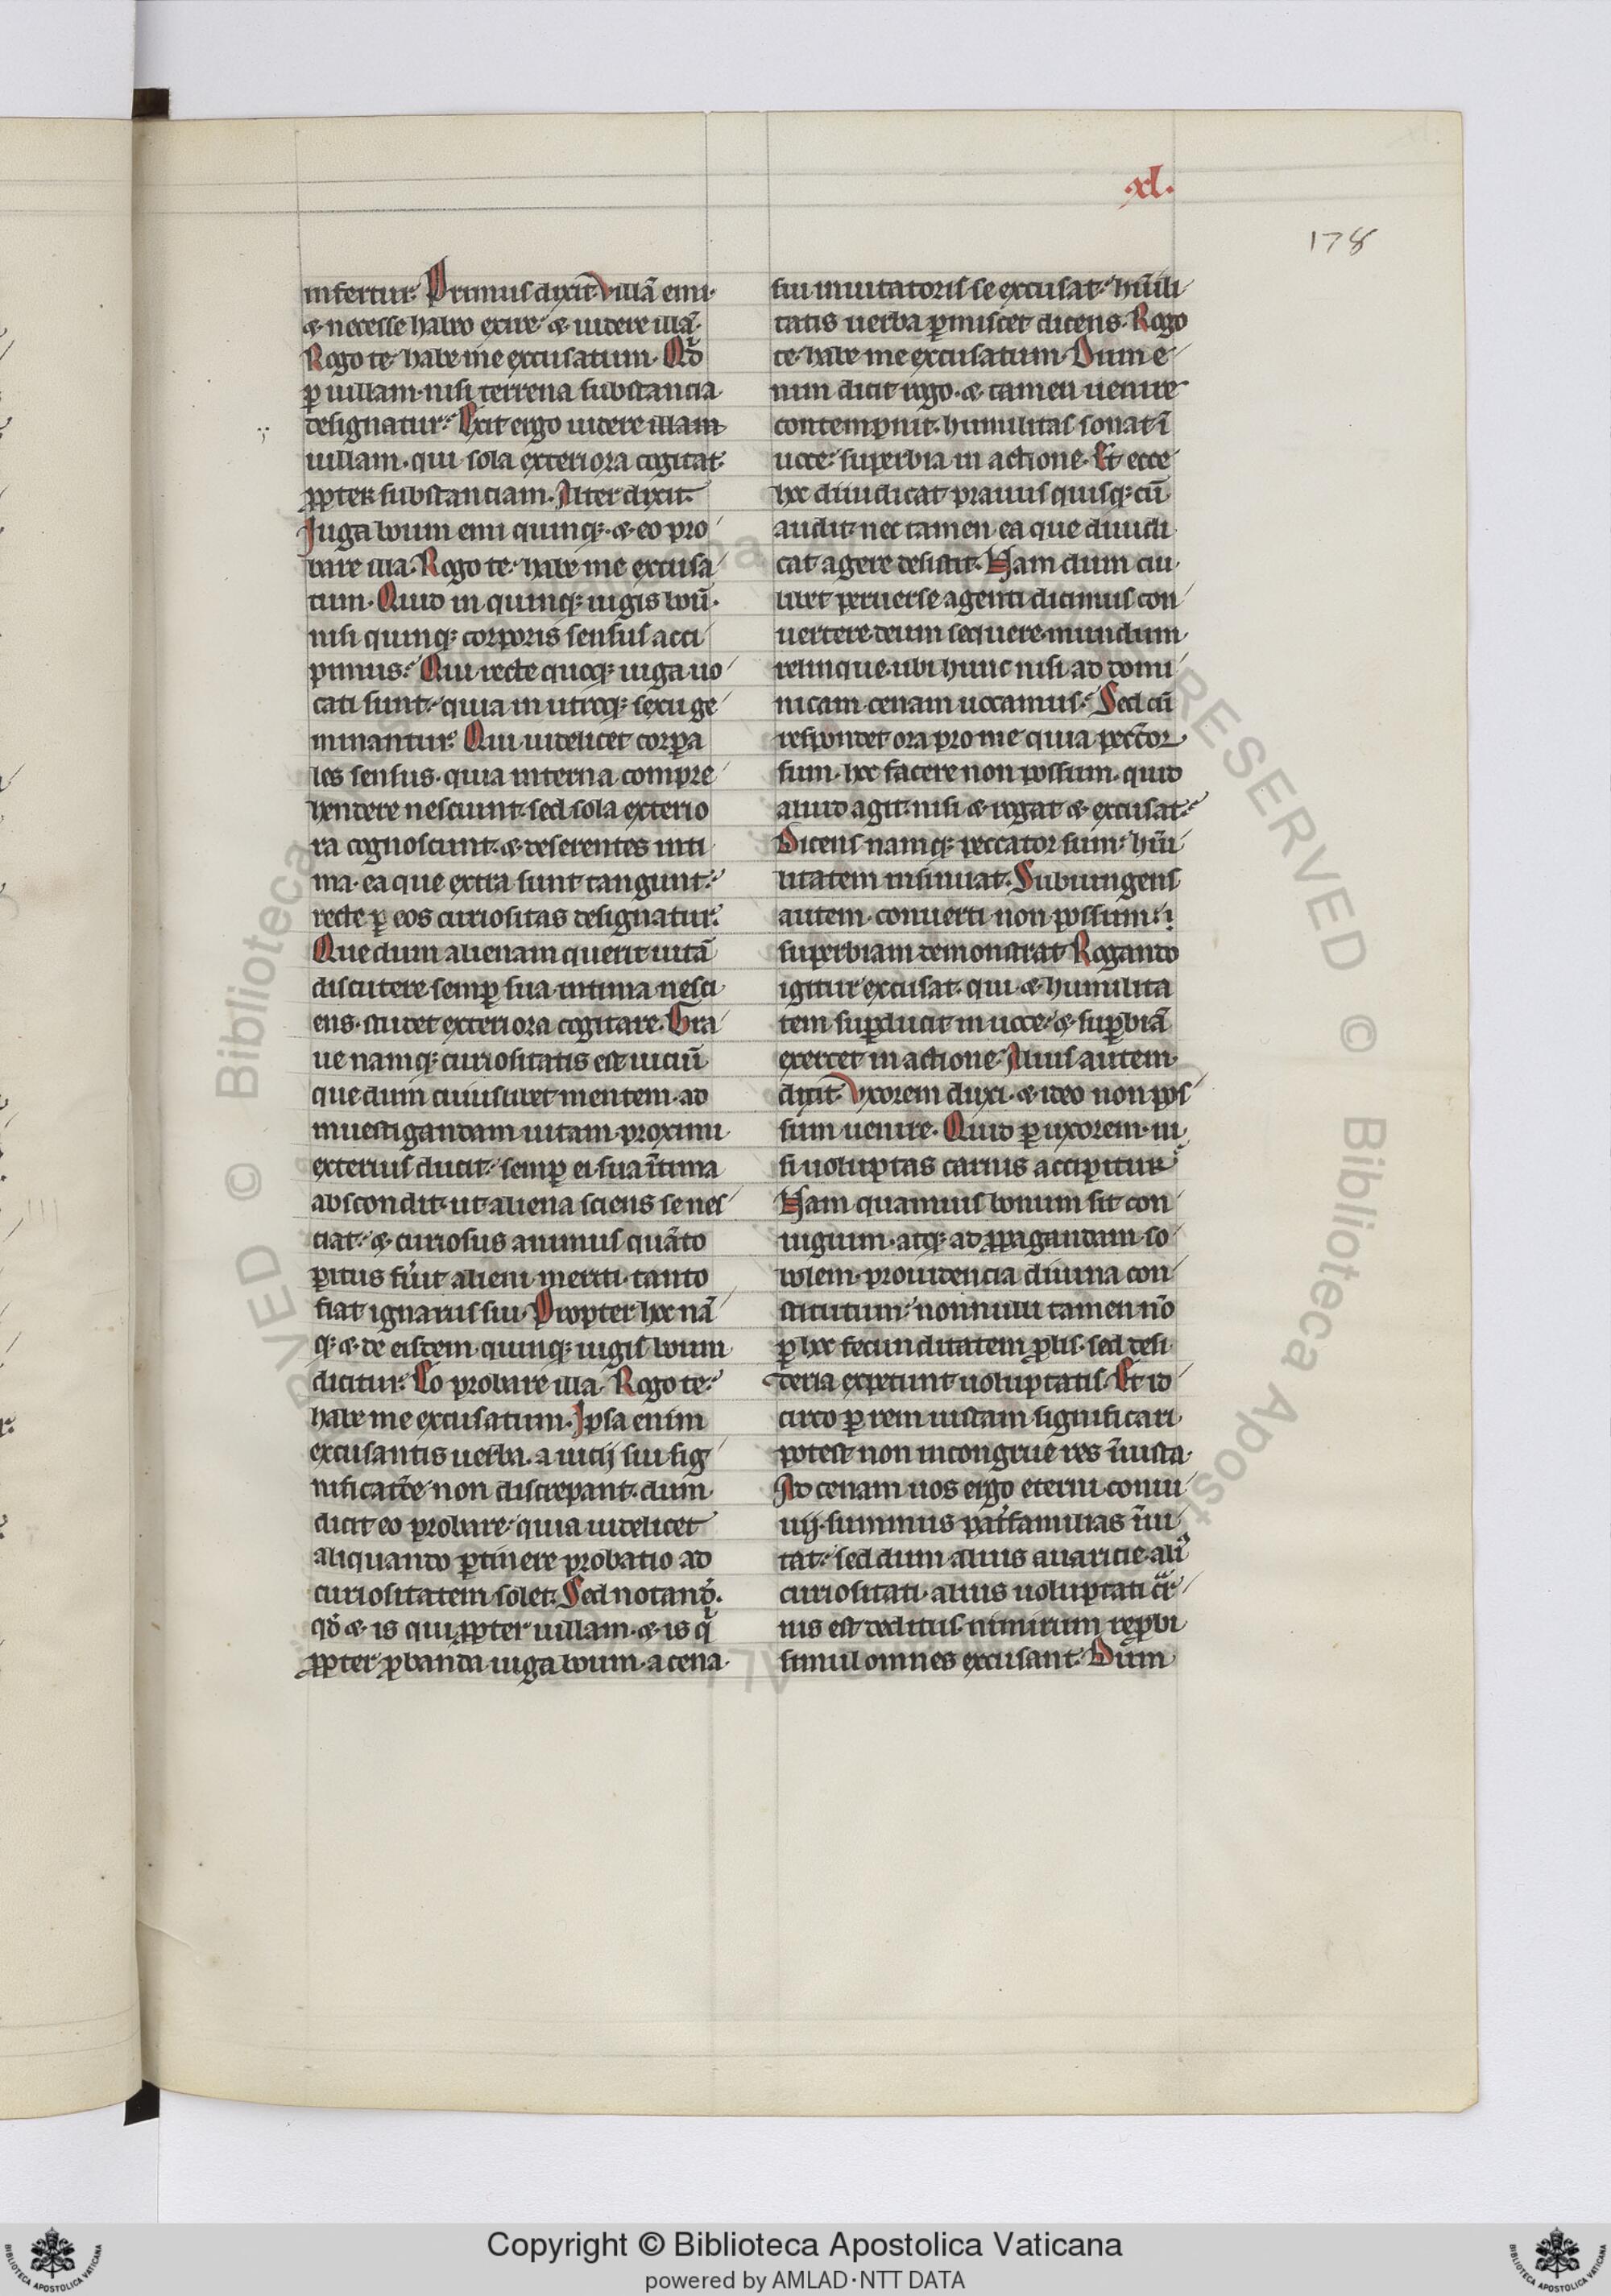 .xl.
178
infertur. Primus dixit. villã emi.
⁊ necesse habeo exire. ⁊ uidere illã.
Rogo te habe me excusatum. Qd̾
ꝑ uillam. nisi terrena substancia
designatur. Exit ergo uidere illam
uillam. qui sola exteriora cogitat
ꝓpter substanciam. Alter dixit.
Iuga boum emi quinqꝫ. ⁊ eo pro/
bare illa. Rogo te. habe me excusa/
tum. Quid in quinqꝫ iugis boũ.
nisi quinqꝫ corporis sensus acci/
pimus. Qui recte quoqꝫ iuga uo/
cati sunt. quia in utroqꝫ sexu ge/
minantur. Qui uidelicet corꝑa
les sensus. quia interna compre/
hendere nesciunt. sed sola exterio
ra cognoscunt. ⁊ deserentes inti
ma. ea que extra sunt tangunt.
recte ꝑ eos curiositas designatur.
Que dum alienam querit uitã
discutere semꝑ sua intima nesci
ens. studet exteriora cogitare. Gra/
ue namqꝫ curiositatis est uiciũ
que dum cuiuslibet mentem. ad
inuestigandam uitam proximi
exterius ducit. semꝑ ei sua ĩtima
abscondit. ut aliena sciens se nes/
ciat. ⁊ curiosus animus quãto
ꝑitus fũit alieni meriti. tanto
fiat ignarus sui. Propter hoc nã/
qꝫ ⁊ de eisdem quinqꝫ iugis boum
dicitur. Eo probare illa. Rogo te.
habe me excusatum. Ipsa enim
excusantis uerba. a uicij sui sig/
nificatõe non discrepant. dum
dicit eo probare. quia uidelicet
aliquando ꝑtinere probatio ad
curiositatem solet. Sed notandꝰ.
qd̾ ⁊ is qui ꝓpter uillam. ⁊ is q̃
ꝓpter ꝓbanda iuga boum. a cena
sui inuitatoris se excusat. hũili/
tatis uerba ꝑmiscet dicens. Rogo
te. habe me excusatum. Dum e/
nim dicit rogo. ⁊ tamen uenire
contempnit. humilitas sonat ĩ
uoce. superbia in actione. Et ecce
hoc diiudicat prauus quisqꝫ cũ
audit. nec tamen ea que diiudi
cat agere desistit. Nam dum cui
libet peruerse agenti dicimus con/
uertere. deum sequere. mundum
relinque. ubi hunc nisi ad domi/
nicam cenam uocamus. Sed cũ
respondet ora pro me quia pecc̃or
sum. hoc facere non possum. quid
aliud agit. nisi ⁊ rogat ⁊ excusat.
Dicens namqꝫ peccator sum. hũi/
litatem insinuat. Subiungens
autem. conuerti non possum.
superbiam demonstrat. Rogando
igitur excusat. qui ⁊ humilita
tem suꝑducit in uoce. ⁊ suꝑbiã
exercet in actione. Alius autem
dixit. vxorem duxi. ⁊ ideo non pos/
sum uenire. Quid ꝑ uxorem. ni
si uoluptas carnis accipitur
Nam quamuis bonum sit con/
iugium. atqꝫ ad ꝓpagandam so/
bolem. prouidencia diuina con/
stitutum. nonnulli tamen nõ
ꝑ hoc fecunditatem ꝓlis. sed desi/
deria expetunt uoluptatis. Et id
circo ꝑ rem iustam significari
potest non incongrue res ĩiusta.
Ad cenam uos ergo eterni conui/
uij. summus pat̾familias ĩui/
tat. sed dum alius auaricie. aliꝰ
curiositati. alius uoluptati cãr/
nis est deditus. nimirum reꝓbi
simul omnes excusant. Dum
Copyright © Biblioteca Apostolica Vaticana
powered by AMLAD·NTT DATA